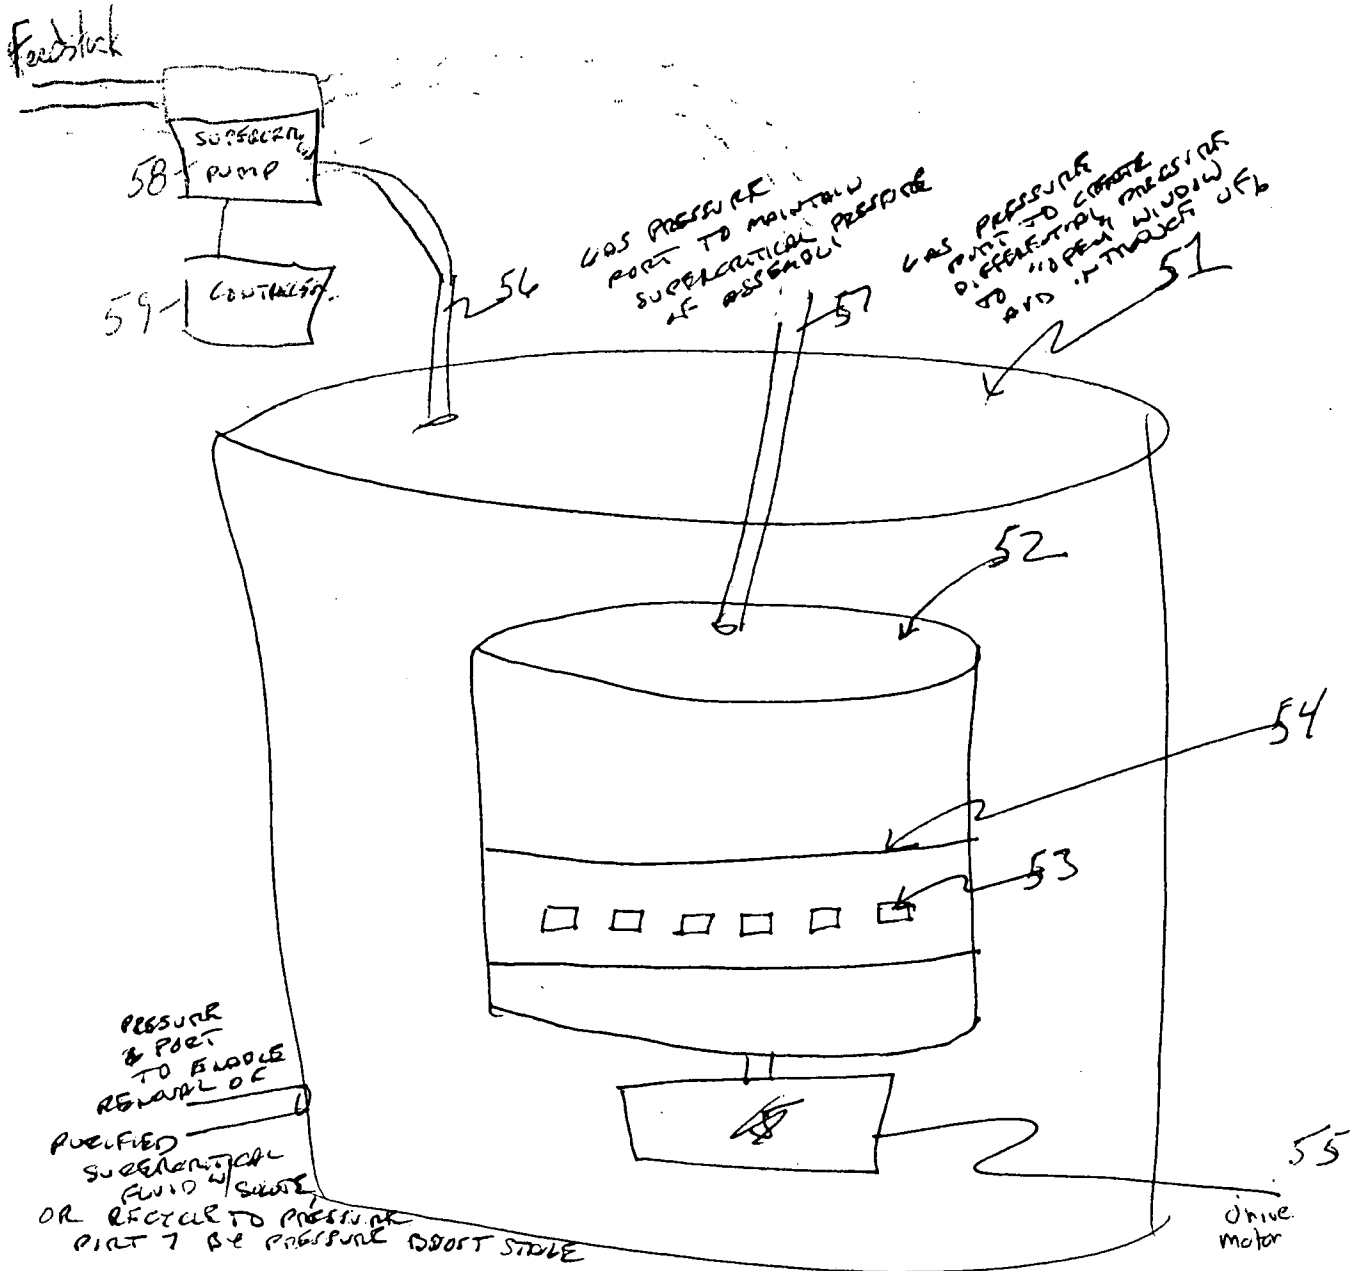 Feedstock
SUPERCRIT
58 PUMP
59 CONTROLLER
56
GAS PRESSURE
PORT TO MAINTAIN
SUPERCRITICAL PRESSURE
OF ASSEMBLY
57
GAS PRESSURE
PORT TO CREATE
DIFFERENTIAL PRESSURE
TO "OPEN WINDOW"
AND INTRODUCE
51
52
54
53
PRESSURE
& PORT
TO ENABLE
REMOVAL OF
PURIFIED
SUPERCRITICAL
FLUID W/SOLUTE,
OR RECYCLE TO PRESSURE
PORT 7 BY PRESSURE BOOST STAGE
55
drive
motor